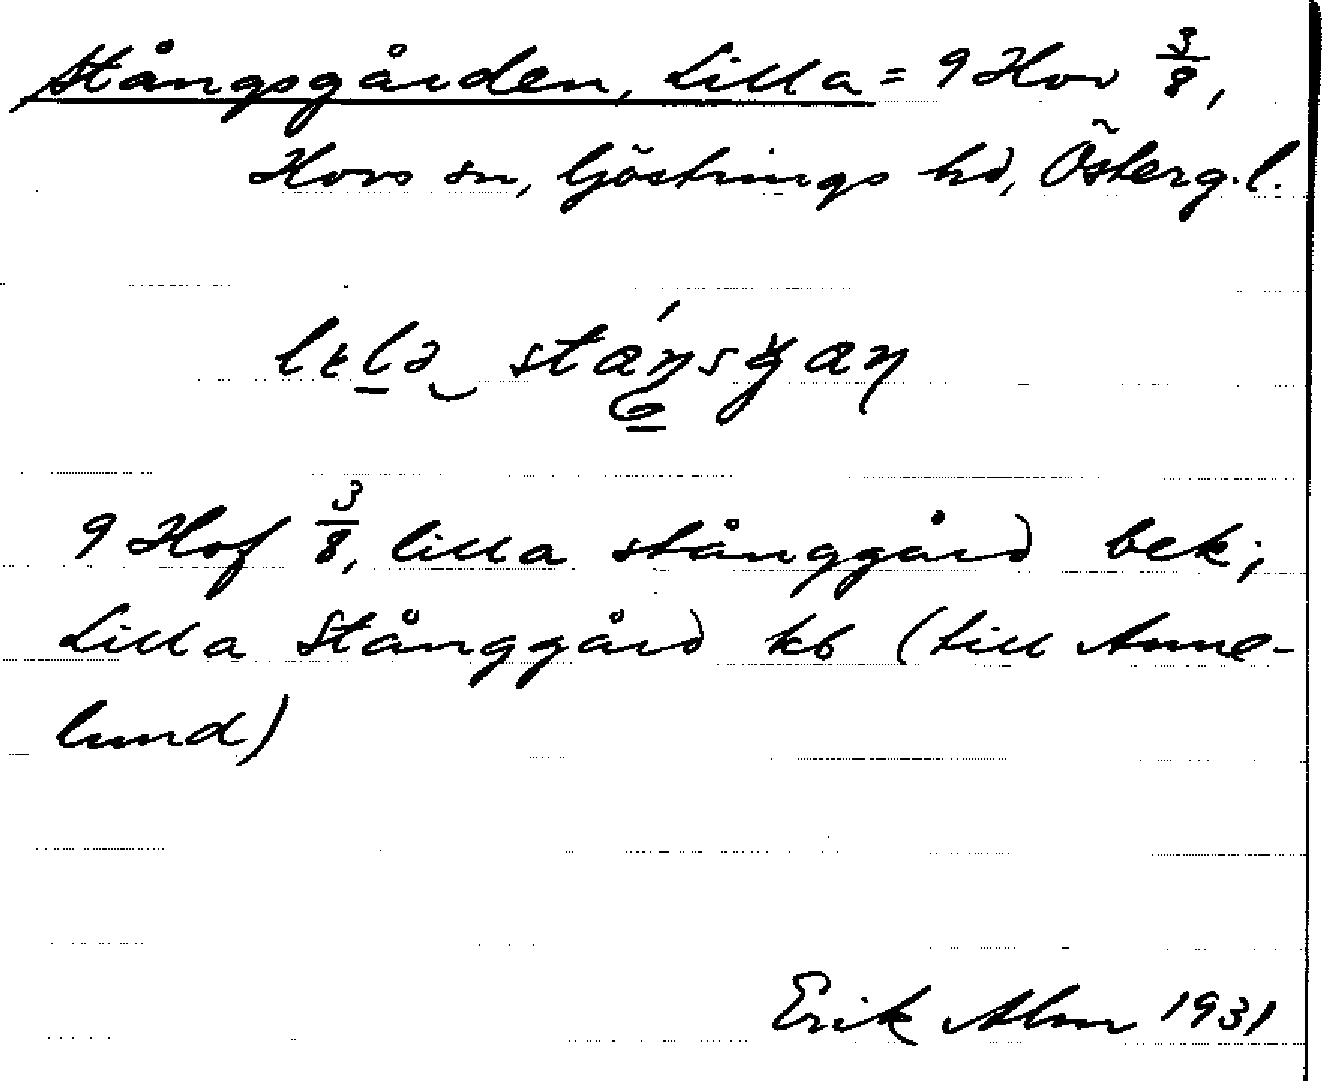 Stångsgården, Lilla = 9 Hov 3/8,
Hovs sn, Göstrings hd, Österg. l.
9 Hof 3/8, lilla stånggård bek;
Lilla Stånggård kb (till Anne-
lund)
Erik Alm 1931